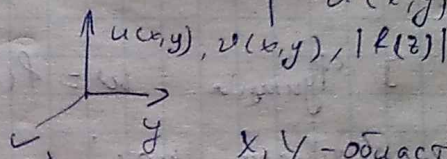 u(x,y), v(x,y), |f(z)|
y
X, Y - област